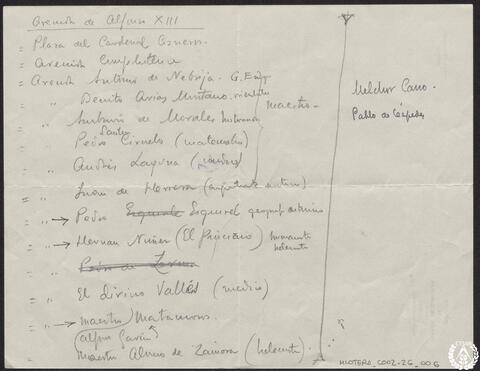 Avenida de Alfonso XIII
= Plaza del Cardenal Cisneros.
= Avenida Complutense
= Avenida Antonio de Nebrija. G. Esq
= " Benito Arias Montano.
= " Ambrosio de Morales historiador
maestro.
Santos
= " Pedro Ciruelo (matematico)
" Andrés Laguna
= " Juan de Herrera (arquitecto
= " → Pedro Esquivel
= " → Hernan Nuñez (El Pinciano) humanista helenista
= " Pedro de Lerma
= " El divino Vallés (medico)
= " → maestro Matamoros.
(Alfonso Garcia
maestro Alonso de Zamora (
Melchor Cano.
Pablo de Céspedes
MLOTERO_C002-26_006